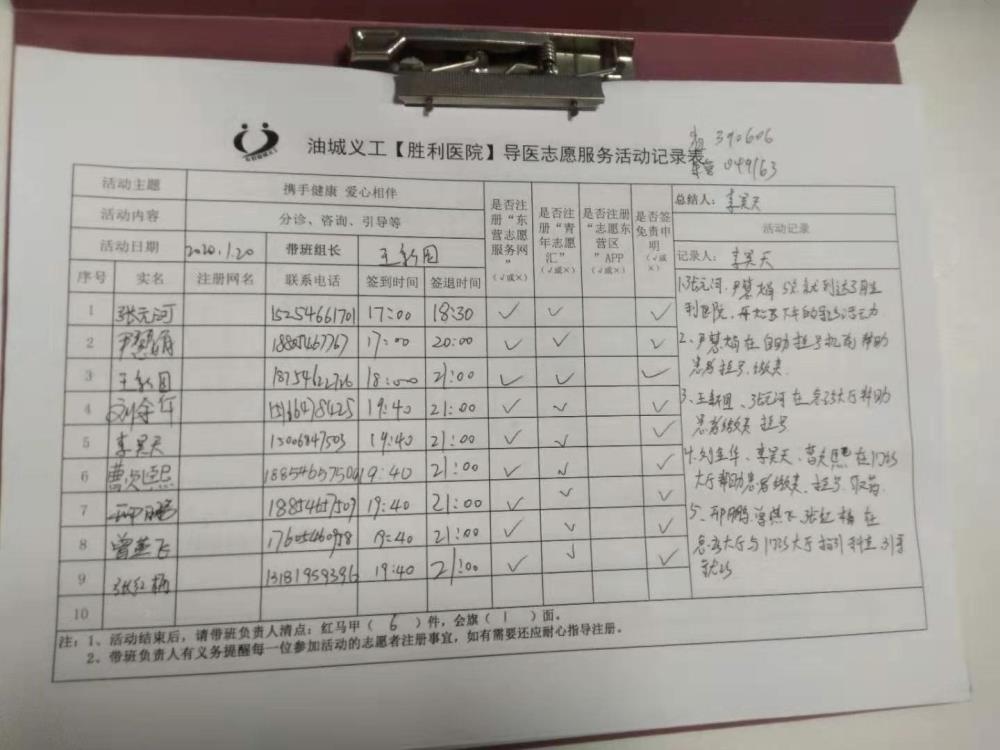 390606
049163
油城义工【胜利医院】导医志愿服务活动记录表
活动主题 携手健康 爱心相伴
活动内容 分诊、咨询、引导等
活动日期 2020.1.20 带班组长 王新图
是否注册“东营志愿服务网” (√或×)
是否注册“青年志愿汇” (√或×)
是否注册“志愿东营区”APP (√或×)
是否签免责申明 (√或×)
总结人: 李昊天
活动记录
记录人: 李昊天
序号 实名 注册网名 联系电话 签到时间 签退时间
1 张元河 15254661701 17:00 18:30 √ √ √
2 17:00 20:00 √ √ √
3 王新图 18754622726 18:00 21:00 √ √ √
4 19:40 21:00 √ √ √
5 李昊天 19:40 21:00 √ √ √
6 19:40 21:00 √ √ √
7 邢鹏 18854657507 19:40 21:00 √ √ √
8 曾燕飞 19:40 21:00 √ √ √
9 张红梅 13181959396 19:40 21:00 √ √ √
10
1.张元河、尹慧娟 5点就到达了胜
利医院,
2、尹慧娟在自助挂号机前帮助
患者挂号、缴费
3、王新图、张元河在急诊大厅帮助
患者缴费 挂号
4、刘金华、李昊天、在门诊
大厅帮助患者缴费、挂号、取药
5、邢鹏 张红梅 在
急诊大厅与门诊大厅指引科室 引导
就诊
注:1、活动结束后,请带班负责人清点:红马甲( 6 )件,会旗( 1 )面。
2、带班负责人有义务提醒每一位参加活动的志愿者注册事宜,如有需要还应耐心指导注册。